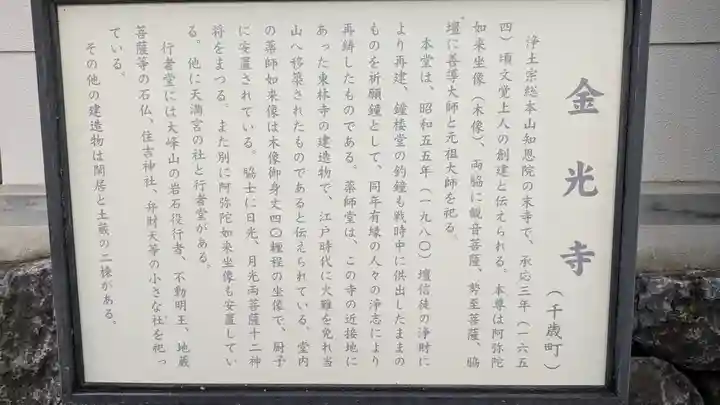 金光寺
（千歳町）
浄土宗総本山知恩院の末寺で、承応三年（一六五
四）頃文覚上人の創建と伝えられる。本尊は阿弥陀
如来坐像（木像）、両脇に観音菩薩、勢至菩薩、脇
壇に善導大師と元祖大師を祀る。
本堂は、昭和五五年（一九八〇）壇信徒の浄財に
より再建、鐘楼堂の釣鐘も戦時中に供出したままの
ものを祈願鐘として、同年有縁の人々の浄志により
再鋳したものである。薬師堂は、この寺の近接地に
あった東林寺の建造物で、江戸時代に火難を免れ当
山へ移築されたものであると伝えられている。堂内
の薬師如来像は木像御身丈四〇糎程の坐像で、厨子
に安置されている。脇士に日光、月光両菩薩十二神
将をまつる。また別に阿弥陀如来坐像も安置してい
る。他に天満宮の社と行者堂がある。
行者堂には大峰山の岩石役行者、不動明王、地蔵
菩薩等の石仏、住吉神社、弁財天等の小さな社を祀っ
ている。
その他の建造物は閑居と土蔵の二棟がある。